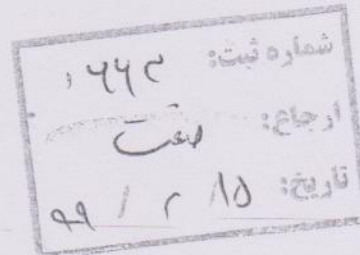 شماره ثبت: ۶۶۳
ارجاع: صنعت
تاریخ: ۹۹ / ۲ / ۱۵